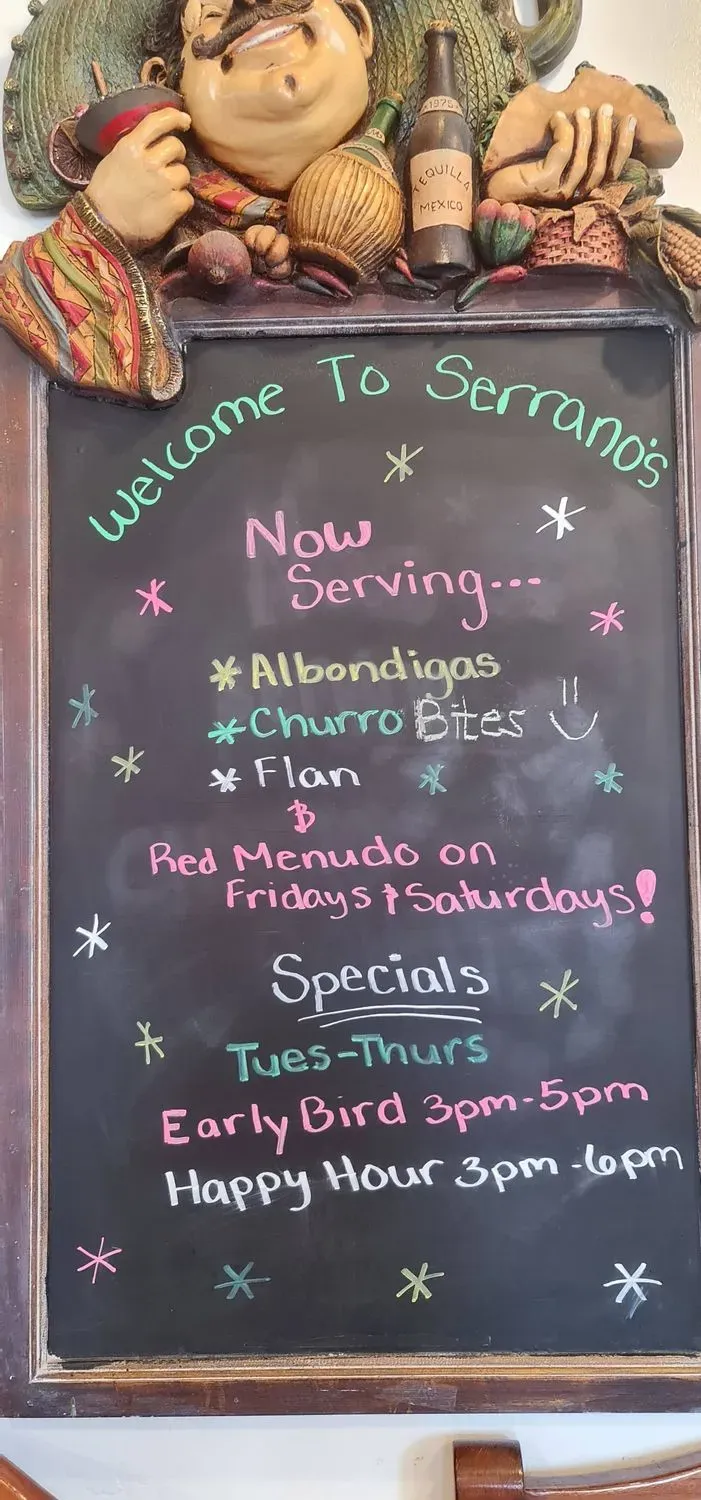 1975
TEQUILLA
MEXICO
Welcome To Serrano's
Now
Serving...
* Albondigas
* Churro Bites
* Flan
&
Red Menudo on
Fridays & Saturdays!
Specials
Tues-Thurs
Early Bird 3pm-5pm
Happy Hour 3pm-6pm